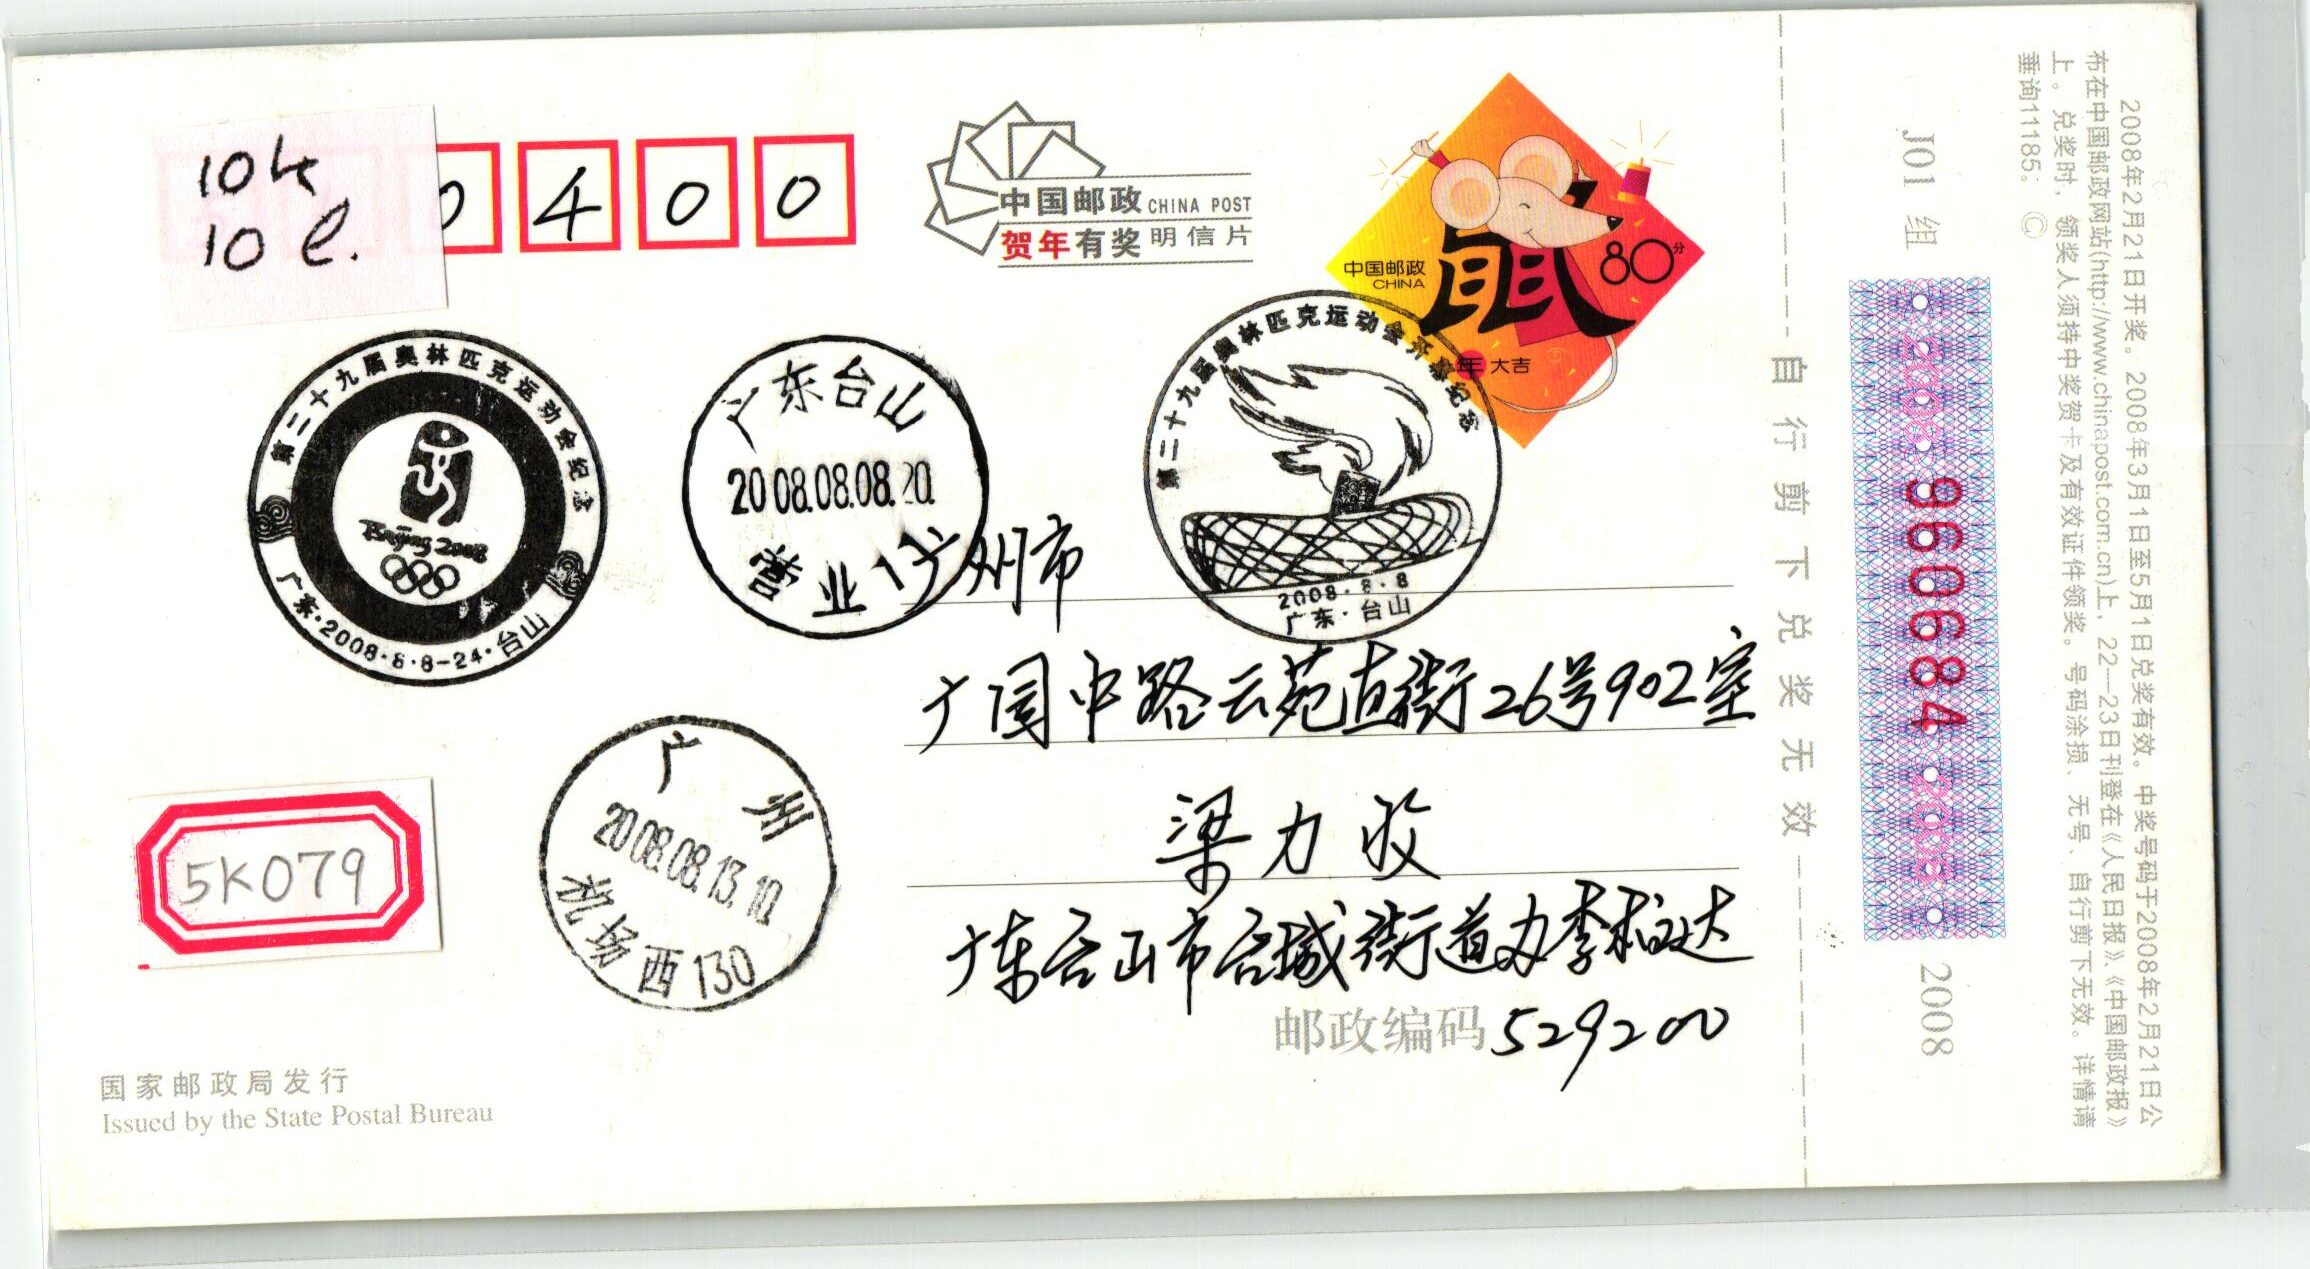 10 k
10 l.
0400
中国邮政 CHINA POST
贺年有奖 明信片
中国邮政
CHINA
鼠
80分
年大吉
第二十九届奥林匹克运动会纪念
Beijing 2008
广东·2008·8·8-24·台山
广东台山
2008.08.08.20.
营业1
第二十九届奥林匹克运动会开幕纪念
2008·8·8
广东·台山
广州市
广园中路云苑直街26号902室
梁力收
广东台山市台城街道办李柏达
邮政编码 529200
广州
2008.08.13.10
机场西130
5K079
国家邮政局发行
Issued by the State Postal Bureau
自行剪下兑奖无效
J01 组
2008 960684 2008
2008
2008年2月21日开奖。2008年3月1日至5月1日兑奖有效。中奖号码于2008年2月21日公
布在中国邮政网站(http://www.chinapost.com.cn)上，22—23日刊登在《人民日报》、《中国邮政报》
上。兑奖时，领奖人须持中奖贺卡及有效证件领奖。号码涂损、无号、自行剪下无效。详情请
垂询11185；©